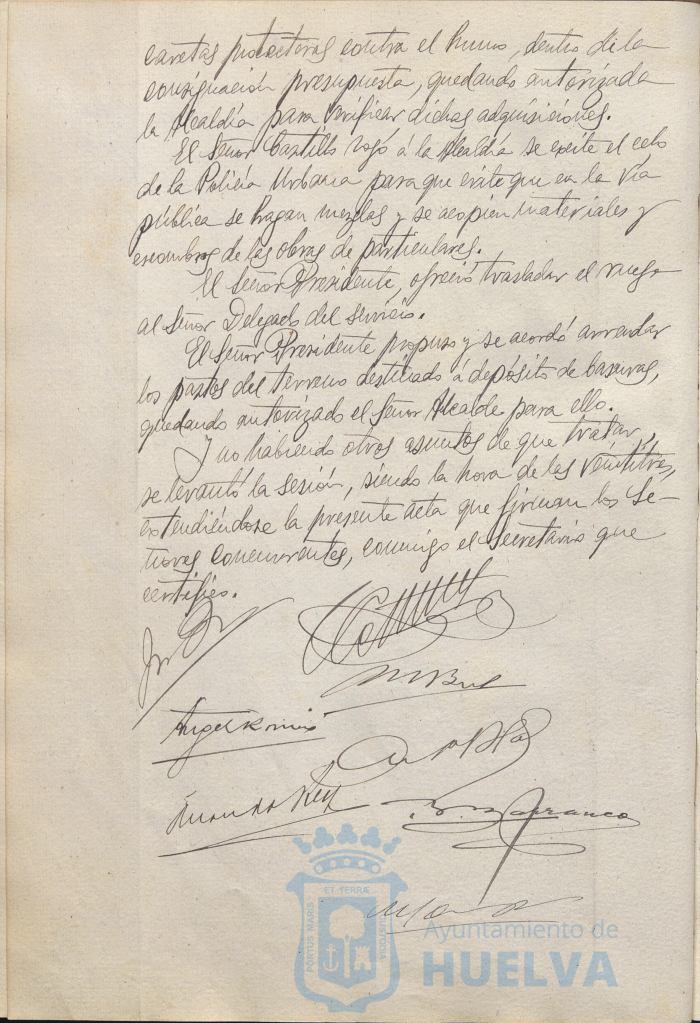 caretas protectoras contra el humo, dentro de la
consignación presupuesta, quedando autorizada
la Alcaldía para verificar dichas adquisiciones.
El Señor Castillo rogó á la Alcaldía se excite el celo
de la Policía Urbana para que evite que en la vía
pública se hagan mezclas y se acopien materiales y
escombros de las obras de particulares.
El Señor Presidente, ofreció trasladar el ruego
al Señor Delegado del servicio.
El Señor Presidente propuso y se acordó arrendar
los pastos del terreno destinado á depósito de basuras,
quedando autorizado el Señor Alcalde para ello.
Y no habiendo otros asuntos de que tratar,
se levantó la sesión, siendo la hora de las veintitres,
extendiéndose la presente acta que firman los Se-
ñores concurrentes, conmigo el Secretario que
certifico.
Angel
Rey
ET TERRÆ
PORTUS MARIS
CUSTODIA
Ayuntamiento de
HUELVA